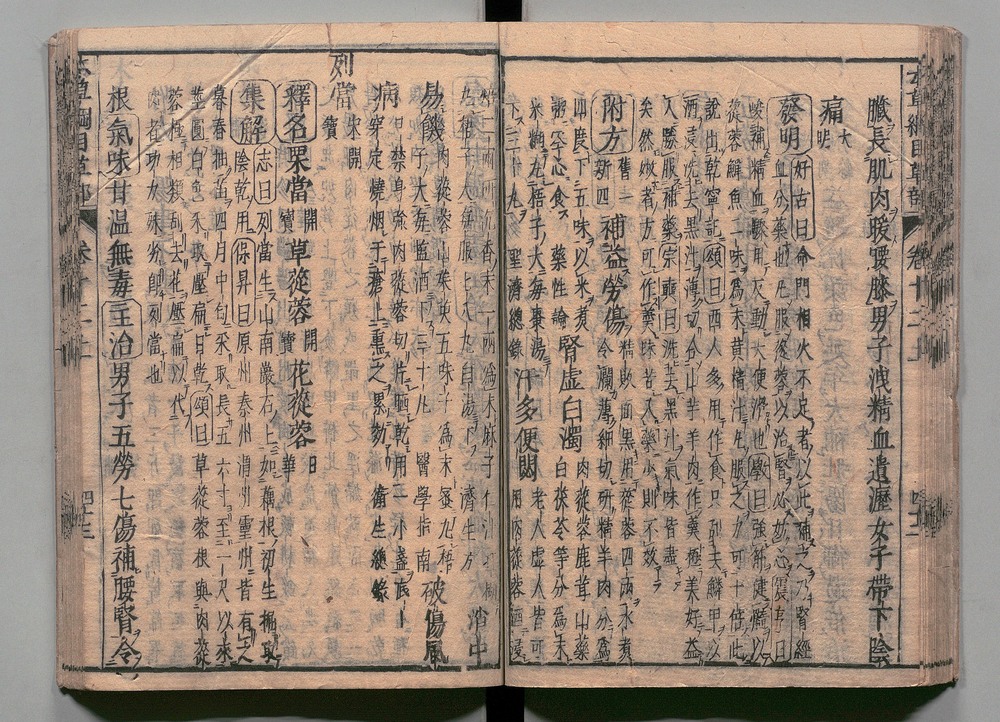 臟長肌肉暖腰膝男子洩精血遺瀝女子帶下陰
痛大明
發明好古曰命門相火不足者以此補之乃腎經
血分藥也凡服蓯蓉以治腎必妨心震亨曰
峻補精血驟用反動大便滑也斅曰強筋健髓以
蓯蓉鱓魚二味為末黃精汁丸服之力可十倍此
說出乾寧記頌曰西人多用作食只刮去鱗甲以
酒淨洗去黑汁薄切合山芋羊肉作羹極美好益
人勝服補藥宗奭曰洗去黑汁氣味皆盡
矣然嫩者方可作羹老者味苦入藥少則不效
附方舊一新四補益勞傷精敗面黑用蓯蓉四兩水煮
令爛薄細切研精羊肉分為
四度下五味以米煮
粥空心食藥性論腎虛白濁肉蓯蓉鹿茸山藥
白茯苓等分為末
米糊丸梧子大每棗湯
下三十丸聖濟總錄汗多便閟老人虛人皆可
用肉蓯蓉酒浸
焙二兩研沉香末一兩為末麻子仁汁
丸梧子大每服七十丸白湯下濟生方消中
易饑肉蓯蓉山茱萸五味子為末蜜丸梧
子大每鹽酒下二十丸醫學指南破傷風
病口禁身強肉蓯蓉切片晒乾用一小盞底上
穿定燒烟于瘡上熏之累効衛生總錄
列當宋開寶
釋名栗當開寶草蓯蓉開寶花蓯蓉日華
集解志曰列當生山南巖石上如藕根初生掘取
陰乾用保昇曰原州秦州渭州靈州皆有之
暮春抽苗四月中旬采取長五六寸至一尺以來
莖圓白色采取壓扁日乾頌曰草蓯蓉根與肉蓯
蓉極相類刮去花壓扁以代
肉者功力殊劣即列當也
根氣味甘溫無毒主治男子五勞七傷補腰腎令